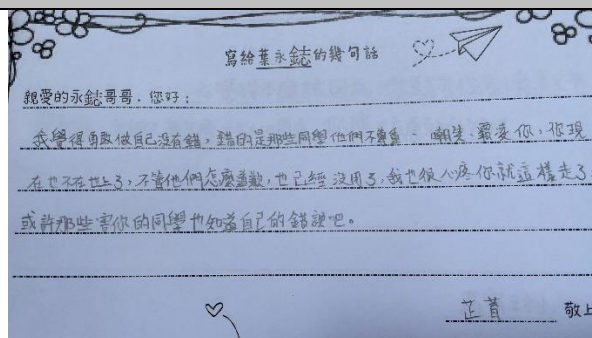 寫給葉永鋕的幾句話
親愛的永鋕哥哥，您好：
我覺得勇敢做自己沒有錯，錯的是那些同學他們不尊重、嘲笑、霸凌你，你現
在也不在世上了，不管他們怎麼道歉，也已經沒用了，我也很心疼你就這樣走了
或許那些害你的同學也知道自己的錯誤吧。
敬上